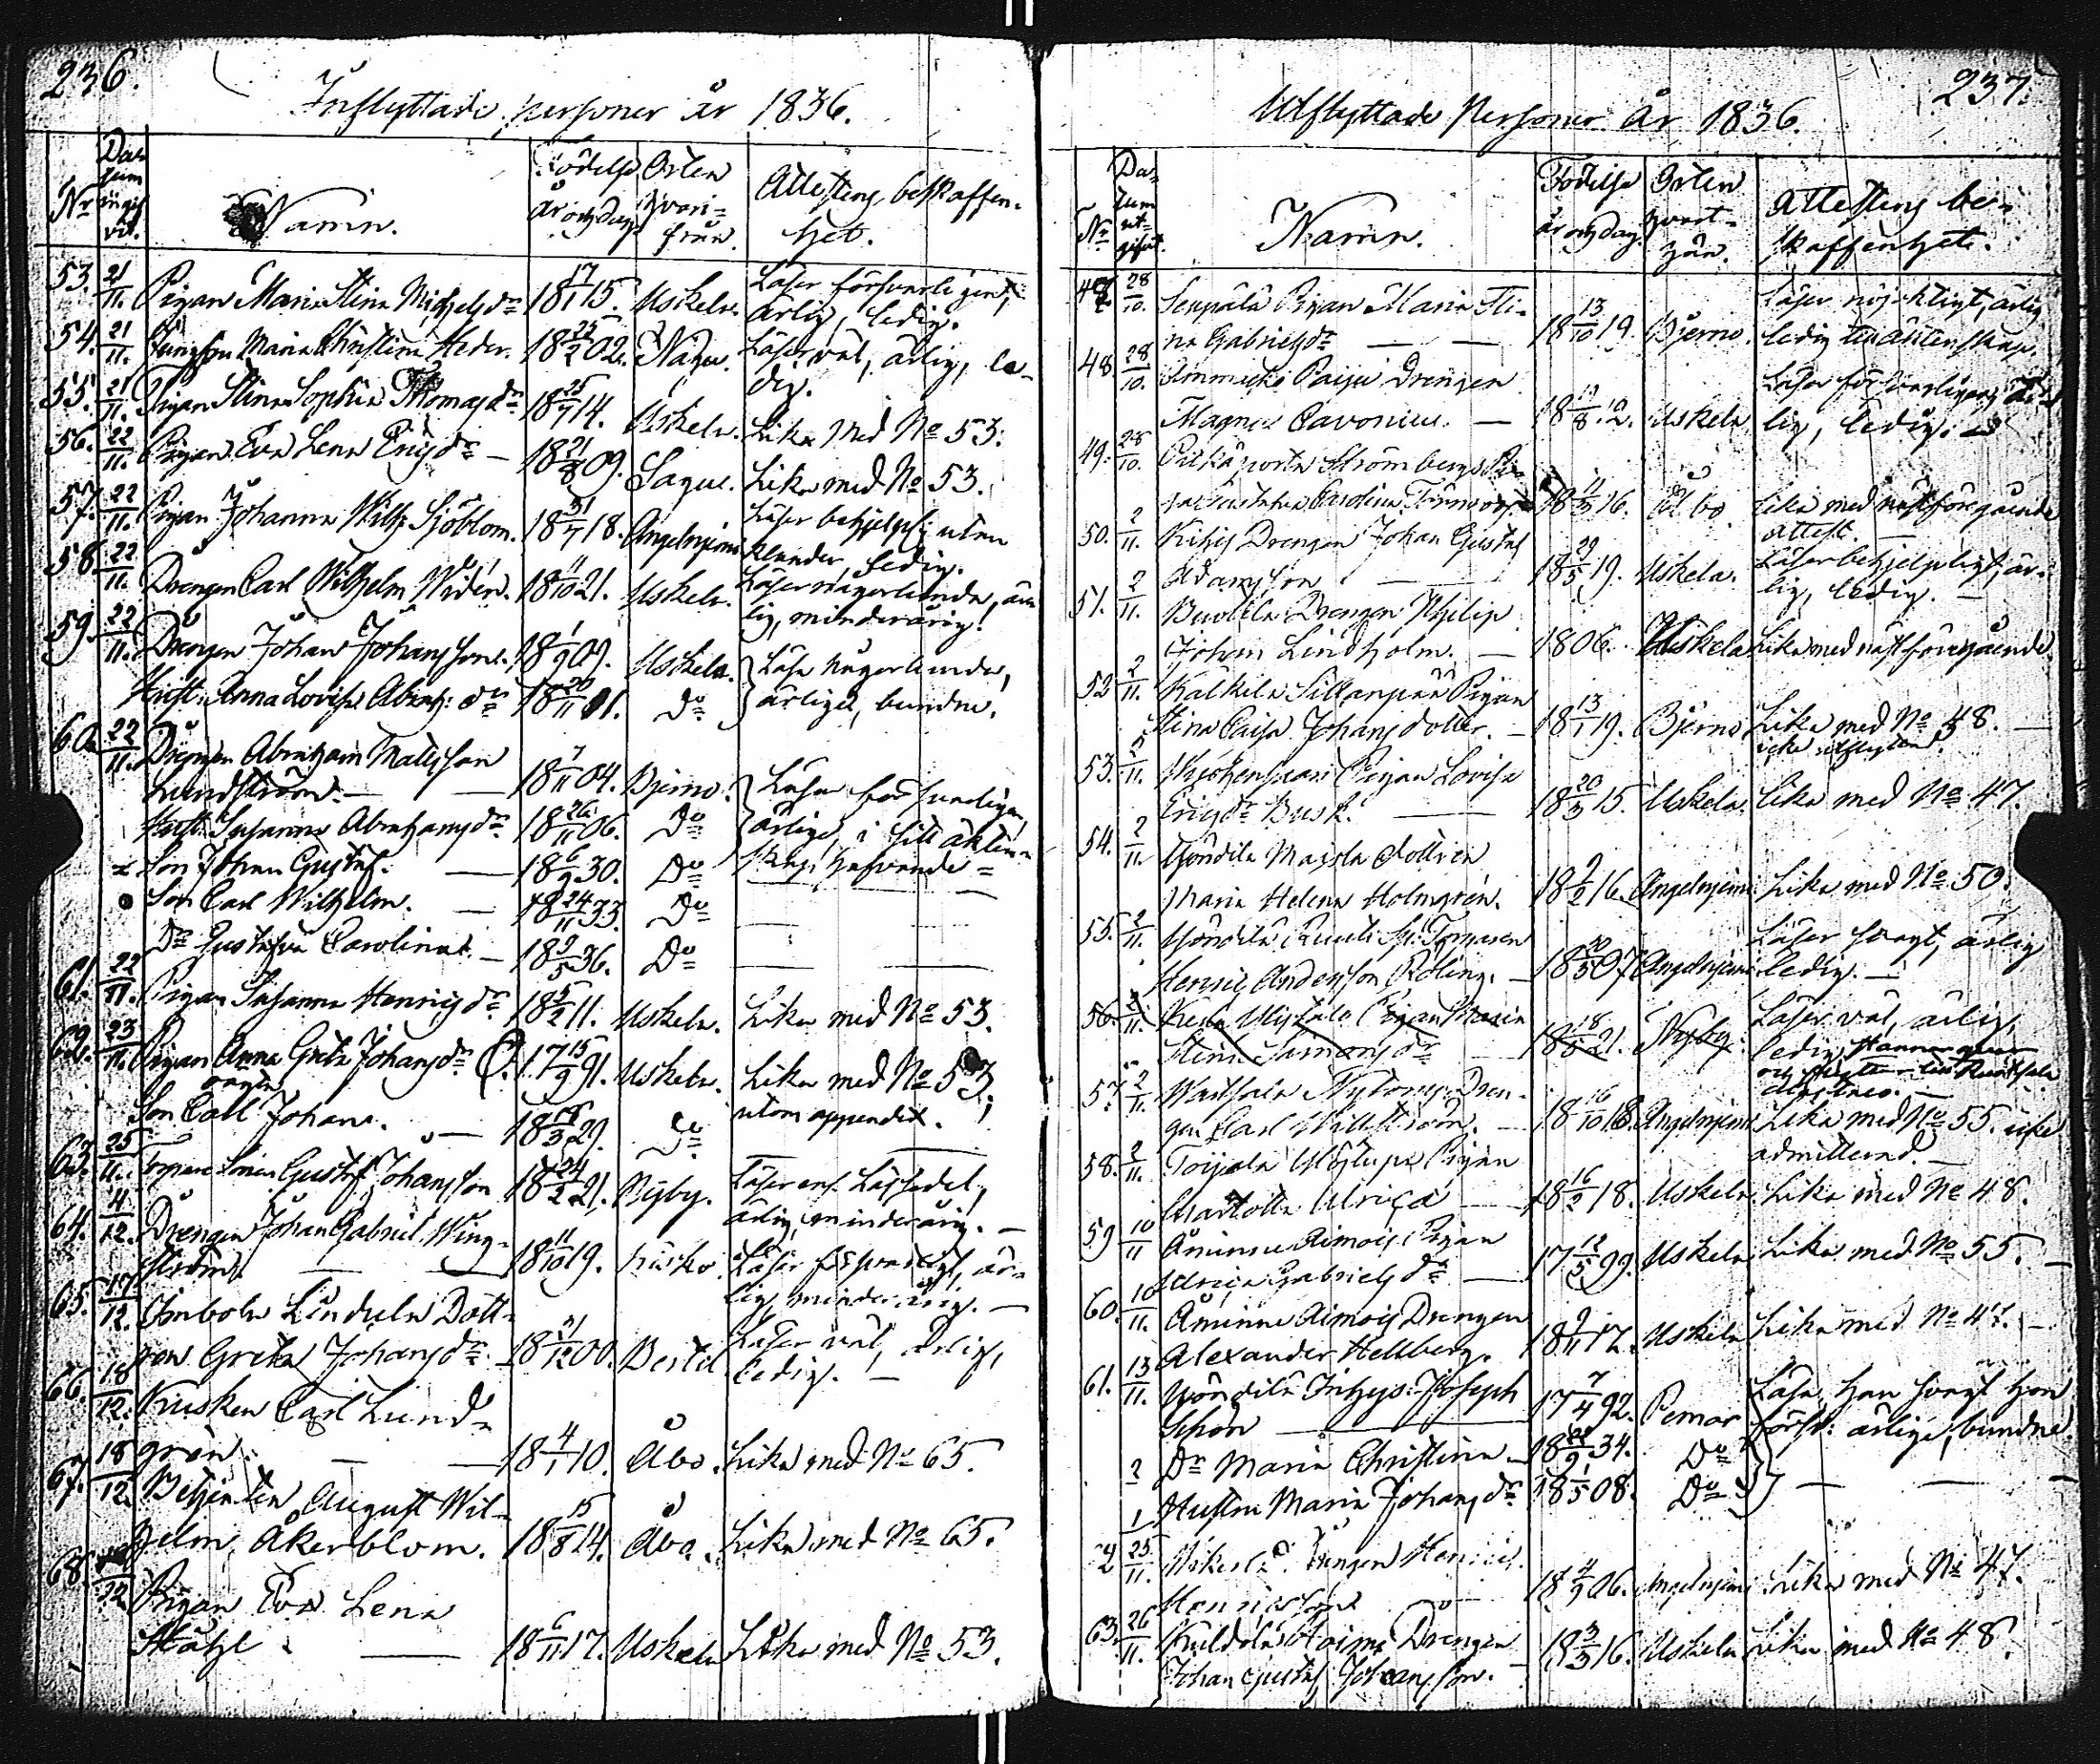 236.
Inflyttade personer år 1836.
Nr Datum ingif vit. Namn. Födelse år och dag Orten hvarifrån. Attestens beskaffenhet.
53. 21/11. Pigan Maria Stina Michelsdr 18 17/1 15. Uskela. Läser försvarligent,
ärlig, ledig.
54. 21/11. Jungfru Maria Christina Heder. 18 25/2 02. Nagu. Läser väl, ärlig, le-
dig.
55. 21/11. Pigan Stina Sophia Thomasdr 18 25/7 14. Uskela. Lika med No 53.
56. 22/11. Pigan Eva Lena Ericsdr — 18 21/8 09. Sagu. Lika med No 53.
57. 22/11. Pigan Johanna Wilh: Sjöblom. 18 31/7 18. Angelniemi Läser behjelpl: utan
klander, ledig.
58. 22/11. Drengen Carl Wilhelm Widén. 18 11/10 21. Uskela. Läser någorlunda, är-
lig, minderårig.
59. 22/11. Drengen Johan Johansson. 18 1/9 09. Uskela. Läsa någorlunda,
Hust: Anna Lovisa Abrah: dr 18 20/11 01. Do ärliga, bundne.
60. 22/11. Drengen Abraham Mattsson
Lundström. — 18 7/11 04. Bjerno. Läsa försvarligen
Hust: Susanna Abrahamsdr 18 26/11 06. Do ärliga, i sitt äkten-
Son Johan Gustaf. — 18 6/9 30. Do skap hafvande =
Son Carl Wilhelm. — 18 24/11 33. Do —
Dr Gustafva Carolina. — 18 9/5 36. Do —
61. 22/11. Pigan Susanna Henricsdr 18 5/2 11. Uskela. Lika med No 53.
62. 23/11. Pigan Anna Greta Johansdr 17 15/9 91. Uskela. Lika med No 53,
oägta
Son Carl Johan. — 18 18/3 29. Do utom appendix.
63. 25/11. Gustaf Johansson 18 24/2 21. Nyby. Läser enl. Lässedel,
ärlig, minderårig. —
64. 4/12. Drengen Johan Gabriel Wing-
ström. — 18 11/10 19. Kisko. Läser försvarligt, är-
lig, minderårig. —
65. 17/12. Lindula Dott-
ren Greta Johansdr 18 21/12 00. Bertil Läser väl, ärlig,
ledig. —
66. 18/12. Kusken Carl Lund-
grén. — 18 4/1 10. Åbo. Lika med No 65.
67. 18/12. Betjenten August Wil-
helm Åkerblom. 18 15/8 14. Åbo. Lika med No 65.
68. /12 Pigan Eva Lena
Ståhl — 18 6/11 17. Uskela Lika med No 53.
237.
Utflyttade Personer År 1836.
Nr Datum utgifvit. Namn. Födelse år och dag. Orten hvart-hän. Attestens be-
skaffenhet.
47 28/10. Seppälä Pigan Maria Sti-
na Gabrielsdr — 18 13/10 19. Bjerno. Läser nöjaktigt, ärlig
ledig till äktenskap.
48. 28/10. Paiju Drengen
Magnus Pavonius. — 18 19/8 12. Uskela Läser försvarligen, är-
lig, ledig.
49. 28/10. Strömbergs Pi-
gan Gustafva Carolina 18 11/3 16. Åbo lika med nästföregående
attest.
50. 2/11. Drengen Johan Gustaf
Adamsson — 18 29/5 19. Uskela. Läser behjelpligt, är-
lig, ledig. —
51. 2/11. Drengen Philip
Johan Lindholm. — 1806. Uskela Lika med nästföregående
52 2/11. Sillanpää Pigan
Stina Caisa Johansdotter. — 18 13/1 19. Bjerno Lika med No 48.
icke utflyttad.
53. 2/11. Pigan Lovisa
Ericsdr Busk. — 18 20/3 15. Uskela. lika med No 47.
54. 2/11. Yöndilä Dottren
Maria Helena Holmgrén. 18 9/2 16. Angelniemi Lika med No 50.
55. 2/11. Yöndilä
Henric Andersson Röling. — 18 30/5 07 Angelniemi Läser svagt, ärlig
ledig. —
56. 2/11. Pigan Maria
Stina Simonsdr — 18 18/8 21. Nyby. Läser väl, ärlig,
ledig,
57. 2/11. Dren-
gen Carl Willström. — 18 16/10 18. Angelniemi Lika med No 55. icke
admitterad. —
58. 2/11. Toijala Pigan
Charlotta Ulrica — 18 16/2 18. Uskela Lika med No 48.
59 10/11 Åminne Aimois Pigan
Gabrielsdr — 17 12/5 99. Uskela Lika med No 55. —
60. 10/11. Åminne Aimois Drengen
Alexander Hellberg. 18 9/11 17. Uskela Lika med No 47. —
61. 13/11. Yöndilä Inhys: Joseph
Schön — 17 7/4 92. Pemar Läsa, han svagt hon
2 Dr Maria Christina 18 22/9 34. Do förs: ärliga, bundne
1 Hustru Maria Johansdr 18 1/5 08. Do —
62 25/11. Drengen Henric
Henricsson — 18 4/9 06. Angelniemi Lika med No 47.
63. 26/11. Drengen
Johan Gustaf Johansson. — 18 3/3 16. Uskela Lika med No 48.